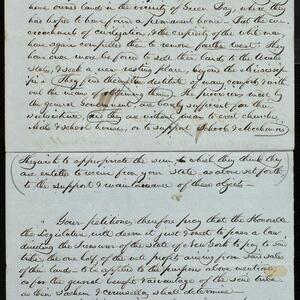 have owned lands in the vicinity of Green Bay, where they
has hopes to have found a permanent home. But the en-
croachments of civilization, & the cupidity of the white man
have again compelled them to remove farther west. They
have once more been forced to sell their lands to the United
States, & seek a new resting place, beyond the Mississip-
pi. They find themselves destitute of many comforts, & with-
out the means of obtaining them. The provisions made by
the general Government, are barely sufficient for their
subsistence, and they are without means to erect churches,
Mills & school houses, or to support Schools & Mechanics
They ask to appropriate the sum to which they think they
are entitled to receive from your State as above set forth,
to the support & maintainance of these objects.
Your petitioners therefore pray that the Honorable
the Legislature will deem it just & meet to pass a law,
directing the Treasurer of the State of New York to pay to said
tribe the one half of the net profits arising from said sales
of their land - to be applied to the purposes above mentioned
or for the general benefit & advantage of the said tribe
as their Sachem & counsellors shall determine